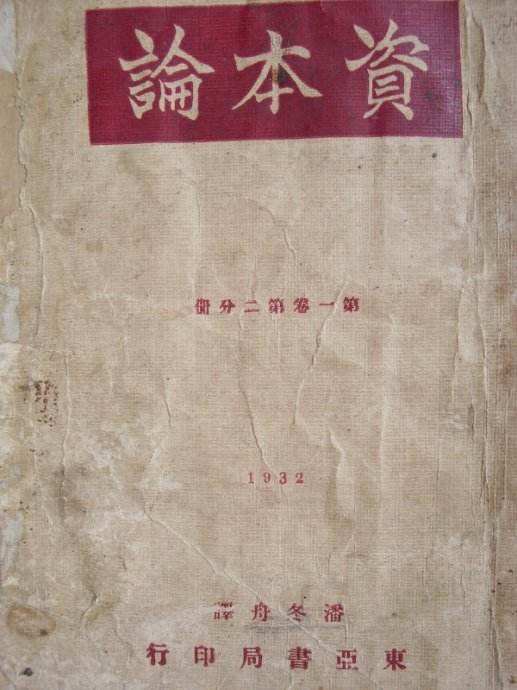 資本論
第一卷第二分冊
1932
潘冬舟譯
東亞書局印行